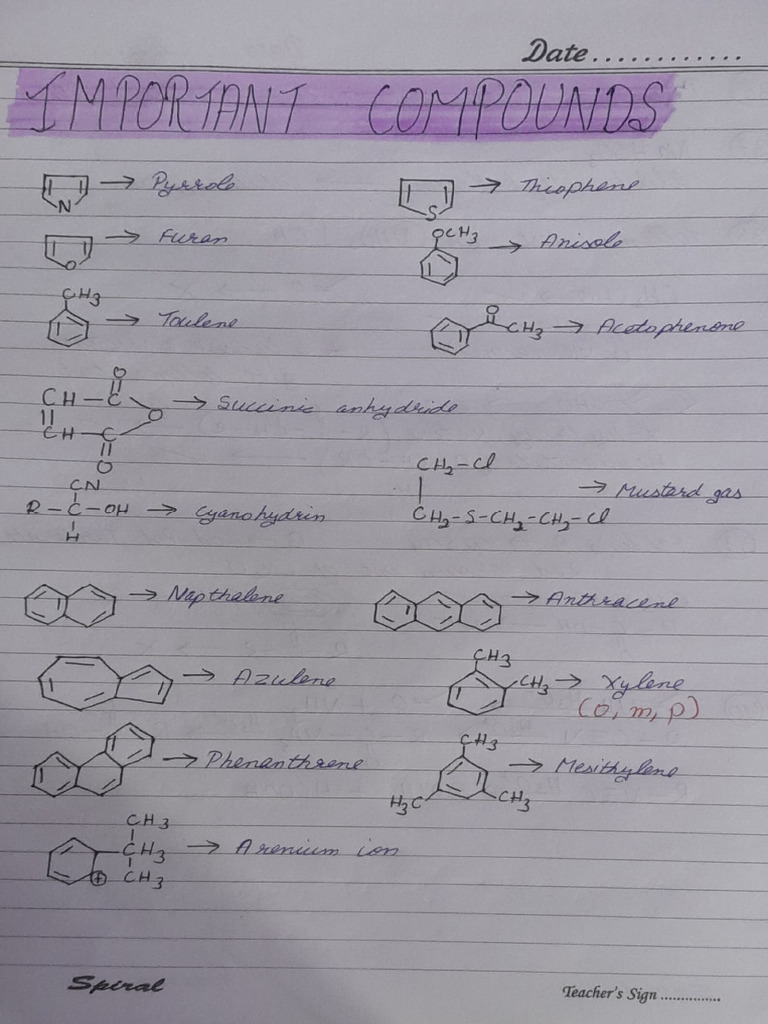 Date............
IMPORTANT COMPOUNDS
N → Pyrrole
S → Thiophene
O → Furan
OCH3 → Anisole
CH3 → Toulene
O CH3 → Acetophenone
O
CH - C
O → Succinic anhydride
CH - C
O
CN
R - C - OH → Cyanohydrin
H
CH2 - Cl
→ Mustard gas
CH2 - S - CH2 - CH2 - Cl
→ Napthalene
→ Anthracene
→ Azulene
CH3
CH3 → Xylene
(O, m, p)
→ Phenanthrene
CH3
→ Mesithylene
H3C CH3
CH3
C CH3 → Arenium ion
⊕ CH3
Spiral
Teacher's Sign ...............